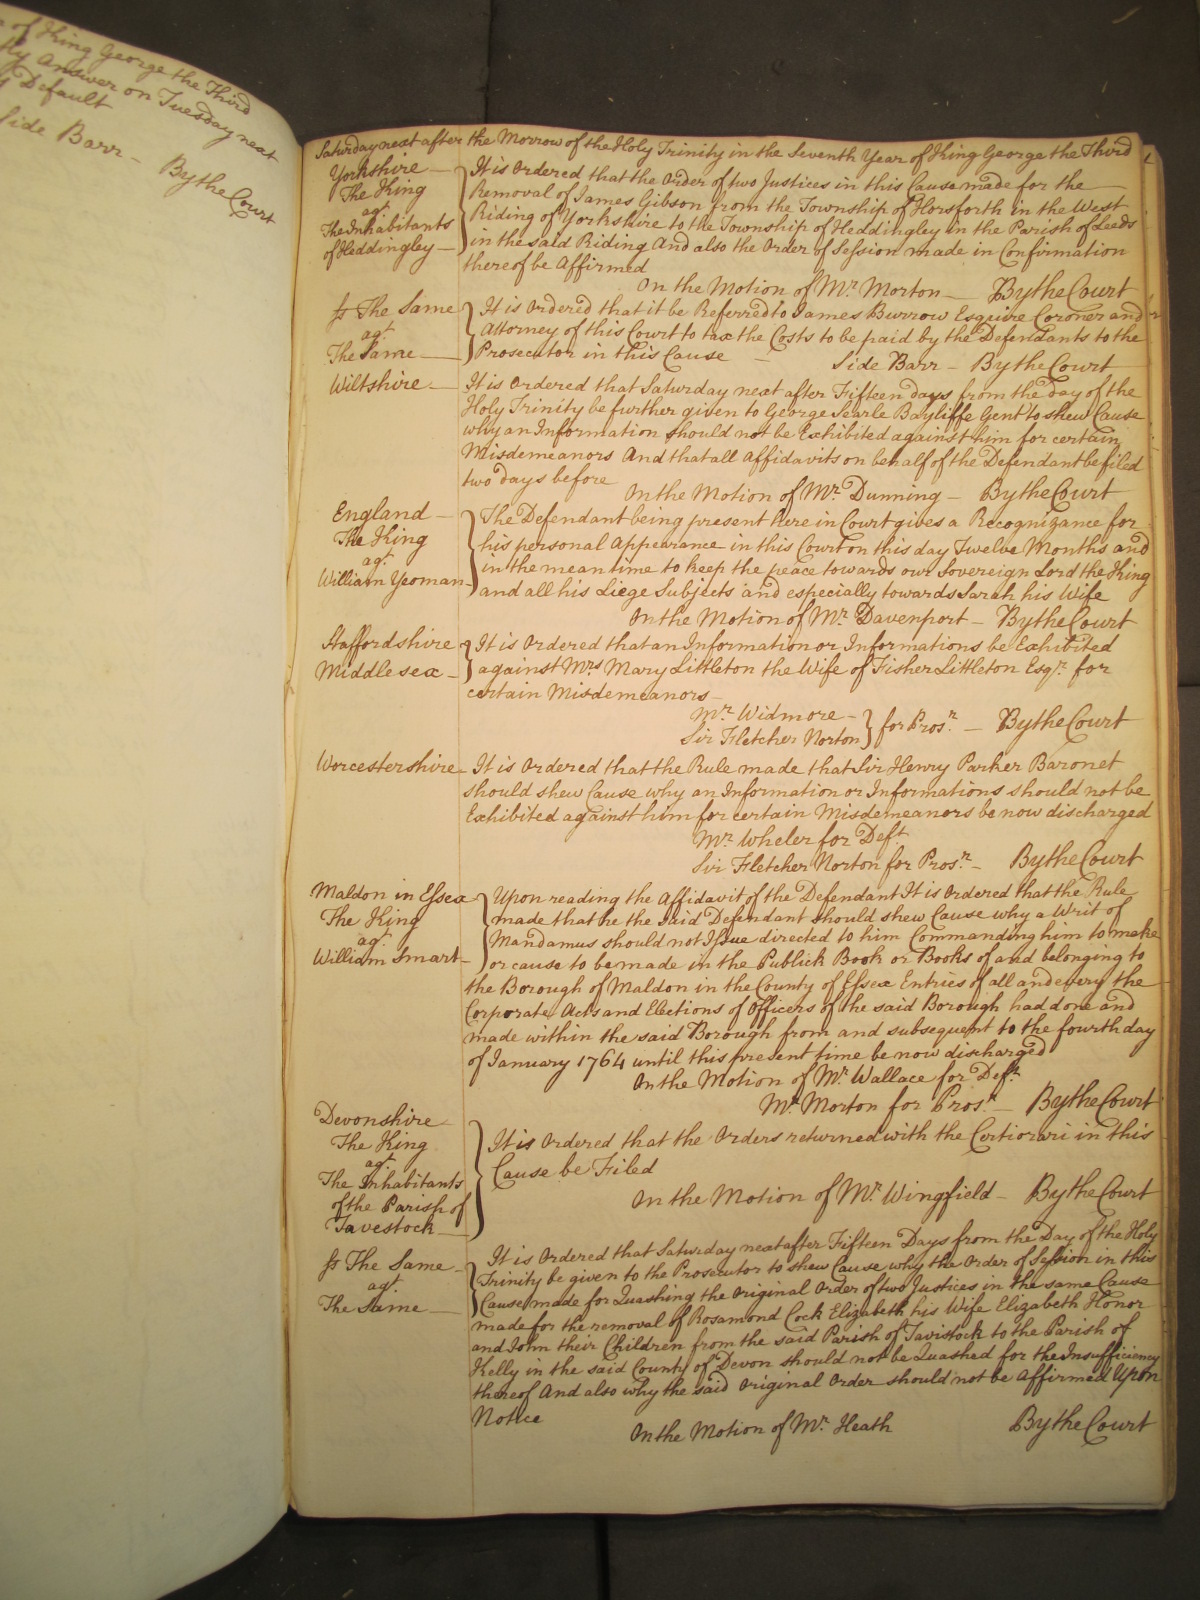 of King George the Third
Answer on Tuesday next
Default
Side Barr – By the Court
Saturday next after the Morrow of the Holy Trinity in the Seventh Year of King George the Third
Yorkshire —
The King
agt
The Inhabitants
of Heddingley —
It is Ordered that the Order of two Justices in this Cause made for the
Removal of James Gibson from the Township of Horsforth in the West
Riding of Yorkshire to the Township of Heddingley in the Parish of Leeds
in the said Riding And also the Order of Session made in Confirmation
thereof be Affirmed
On the Motion of Mr. Morton — By the Court
Js The Same
agt
The Same —
It is Ordered that it be Referred to James Burrow Esquire Coroner and
Attorney of this Court to tax the Costs to be paid by the Defendants to the
Prosecutor in this Cause Side Barr – By the Court
Wiltshire —
It is Ordered that Saturday next after Fifteen days from the day of the
Holy Trinity be further given to George Searle Bayliffe Gent to shew Cause
why an Information should not be Exhibited against him for certain
Misdemeanors And that all Affidavits on behalf of the Defendant be filed
two days before
On the Motion of Mr. Dunning – By the Court
England —
The King
agt
William Yeoman
The Defendant being present here in Court gives a Recognizance for
his personal Appearance in this Court on this day Twelve Months and
in the mean time to keep the peace towards our Sovereign Lord the King
and all his Liege Subjects and especially towards Sarah his Wife
On the Motion of Mr. Davenport – By the Court
Staffordshire
Middlesex –
It is Ordered that an Information or Informations be Exhibited
against Mrs Mary Littleton the Wife of Fisher Littleton Esqr. for
certain Misdemeanors –
Mr. Widmore –
Sir Fletcher Norton } for Pros.r – By the Court
Worcestershire –
It is Ordered that the Rule made that Sir Henry Parker Baronet
should shew Cause why an Information or Informations should not be
Exhibited against him for certain Misdemeanors be now discharged
Mr. Wheler for Deft
Sir Fletcher Norton for Pros.r – By the Court
Maldon in Essex
The King
agt
William Smart –
Upon reading the Affidavit of the Defendant It is Ordered that the Rule
made that he the said Defendant should shew Cause why a Writ of
Mandamus should not Issue directed to him Commanding him to make
or cause to be made in the Publick Book or Books of and belonging to
the Borough of Maldon in the County of Essex Entries of all and every the
Corporate Acts and Elections of Officers of the said Borough had done and
made within the said Borough from and subsequent to the fourth day
of January 1764 until this present time be now discharged
On the Motion of Mr. Wallace for Deft.
Mr Morton for Pros.r – By the Court
Devonshire –
The King
agt
The Inhabitants
of the Parish of
Tavestock —
It is Ordered that the Orders returned with the Certiorari in this
Cause be Filed
On the Motion of Mr Wingfield – By the Court
Js The Same –
agt
The Same —
It is Ordered that Saturday next after Fifteen Days from the Day of the Holy
Trinity be given to the Prosecutor to shew Cause why the Order of Session in this
Cause made for Quashing the Original Order of two Justices in the same Cause
made for the removal of Rosamond Cock Elizabeth his Wife Elizabeth Honor
and John their Children from the said Parish of Tavistock to the Parish of
Kelly in the said County of Devon should not be Quashed for the Insufficiency
thereof And also why the said Original Order should not be Affirmed Upon
Notice
On the Motion of Mr. Heath By the Court